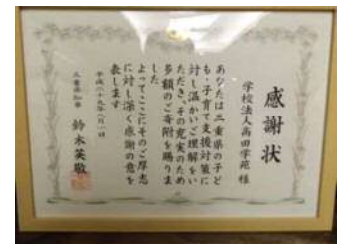 感謝状
学校法人高田学苑 様
あなたは三重県の子ど
も・子育て支援対策に
対し温かいご理解をい
ただき、その充実のため
多額のご寄附を賜りま
した
よってここにそのご厚志
に対し深く感謝の意を
表します
平成二十九年八月一日
三重県知事 鈴木英敬